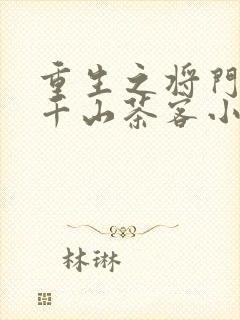 重生之将门
千山茶客小
林琳